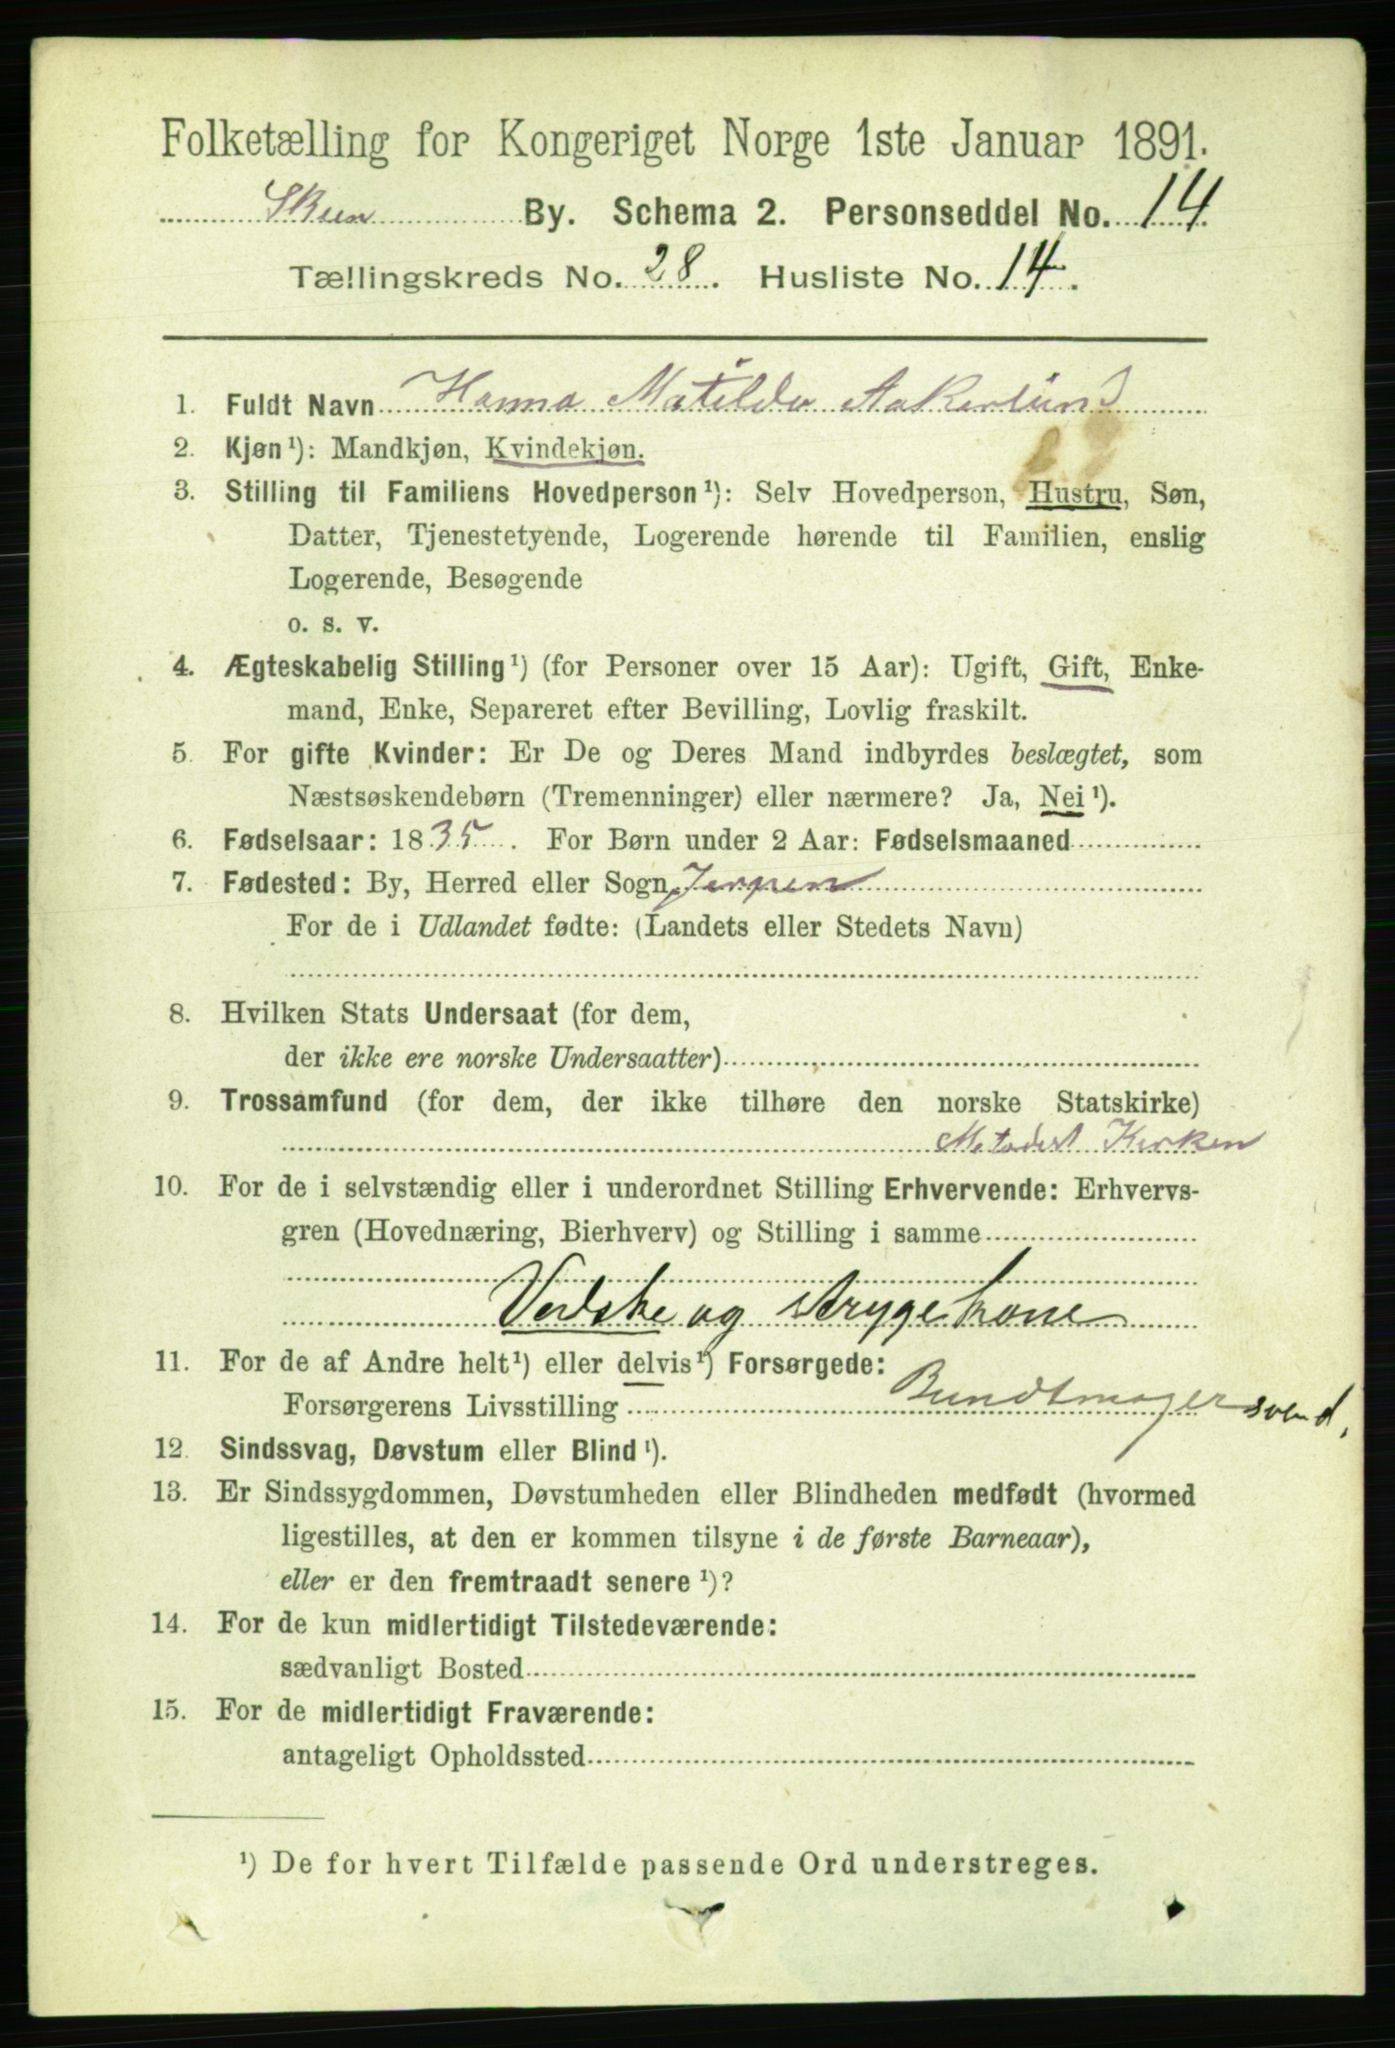 Folketælling for Kongeriget Norge 1ste Januar 1891.
Skien By. Schema 2. Personseddel No. 14
Tællingskreds No. 28. Husliste No. 14.
1. Fuldt Navn Hanna Matilda Aakerlund
2. Kjøn¹): Mandkjøn, Kvindekjøn.
3. Stilling til Familiens Hovedperson¹): Selv Hovedperson, Hustru, Søn,
Datter, Tjenestetyende, Logerende hørende til Familien, enslig
Logerende, Besøgende
o. s. v.
4. Ægteskabelig Stilling¹) (for Personer over 15 Aar): Ugift, Gift, Enke-
mand, Enke, Separeret efter Bevilling, Lovlig fraskilt.
5. For gifte Kvinder: Er De og Deres Mand indbyrdes beslægtet, som
Næstsøskendebørn (Tremenninger) eller nærmere? Ja, Nei¹).
6. Fødselsaar: 1835. For Børn under 2 Aar: Fødselsmaaned
7. Fødested: By, Herred eller Sogn Jerpen
For de i Udlandet fødte: (Landets eller Stedets Navn)
8. Hvilken Stats Undersaat (for dem,
der ikke ere norske Undersaatter)
9. Trossamfund (for dem, der ikke tilhøre den norske Statskirke)
Metodist Kirken
10. For de i selvstændig eller i underordnet Stilling Erhvervende: Erhvervs-
gren (Hovednæring, Bierhverv) og Stilling i samme
Vadske og strygekone
11. For de af Andre helt¹) eller delvis¹) Forsørgede:
Forsørgerens Livsstilling Bundtmagersvend,
12. Sindssvag, Døvstum eller Blind¹).
13. Er Sindssygdommen, Døvstumheden eller Blindheden medfødt (hvormed
ligestilles, at den er kommen tilsyne i de første Barneaar),
eller er den fremtraadt senere¹)?
14. For de kun midlertidigt Tilstedeværende:
sædvanligt Bosted
15. For de midlertidigt Fraværende:
antageligt Opholdssted
¹) De for hvert Tilfælde passende Ord understreges.